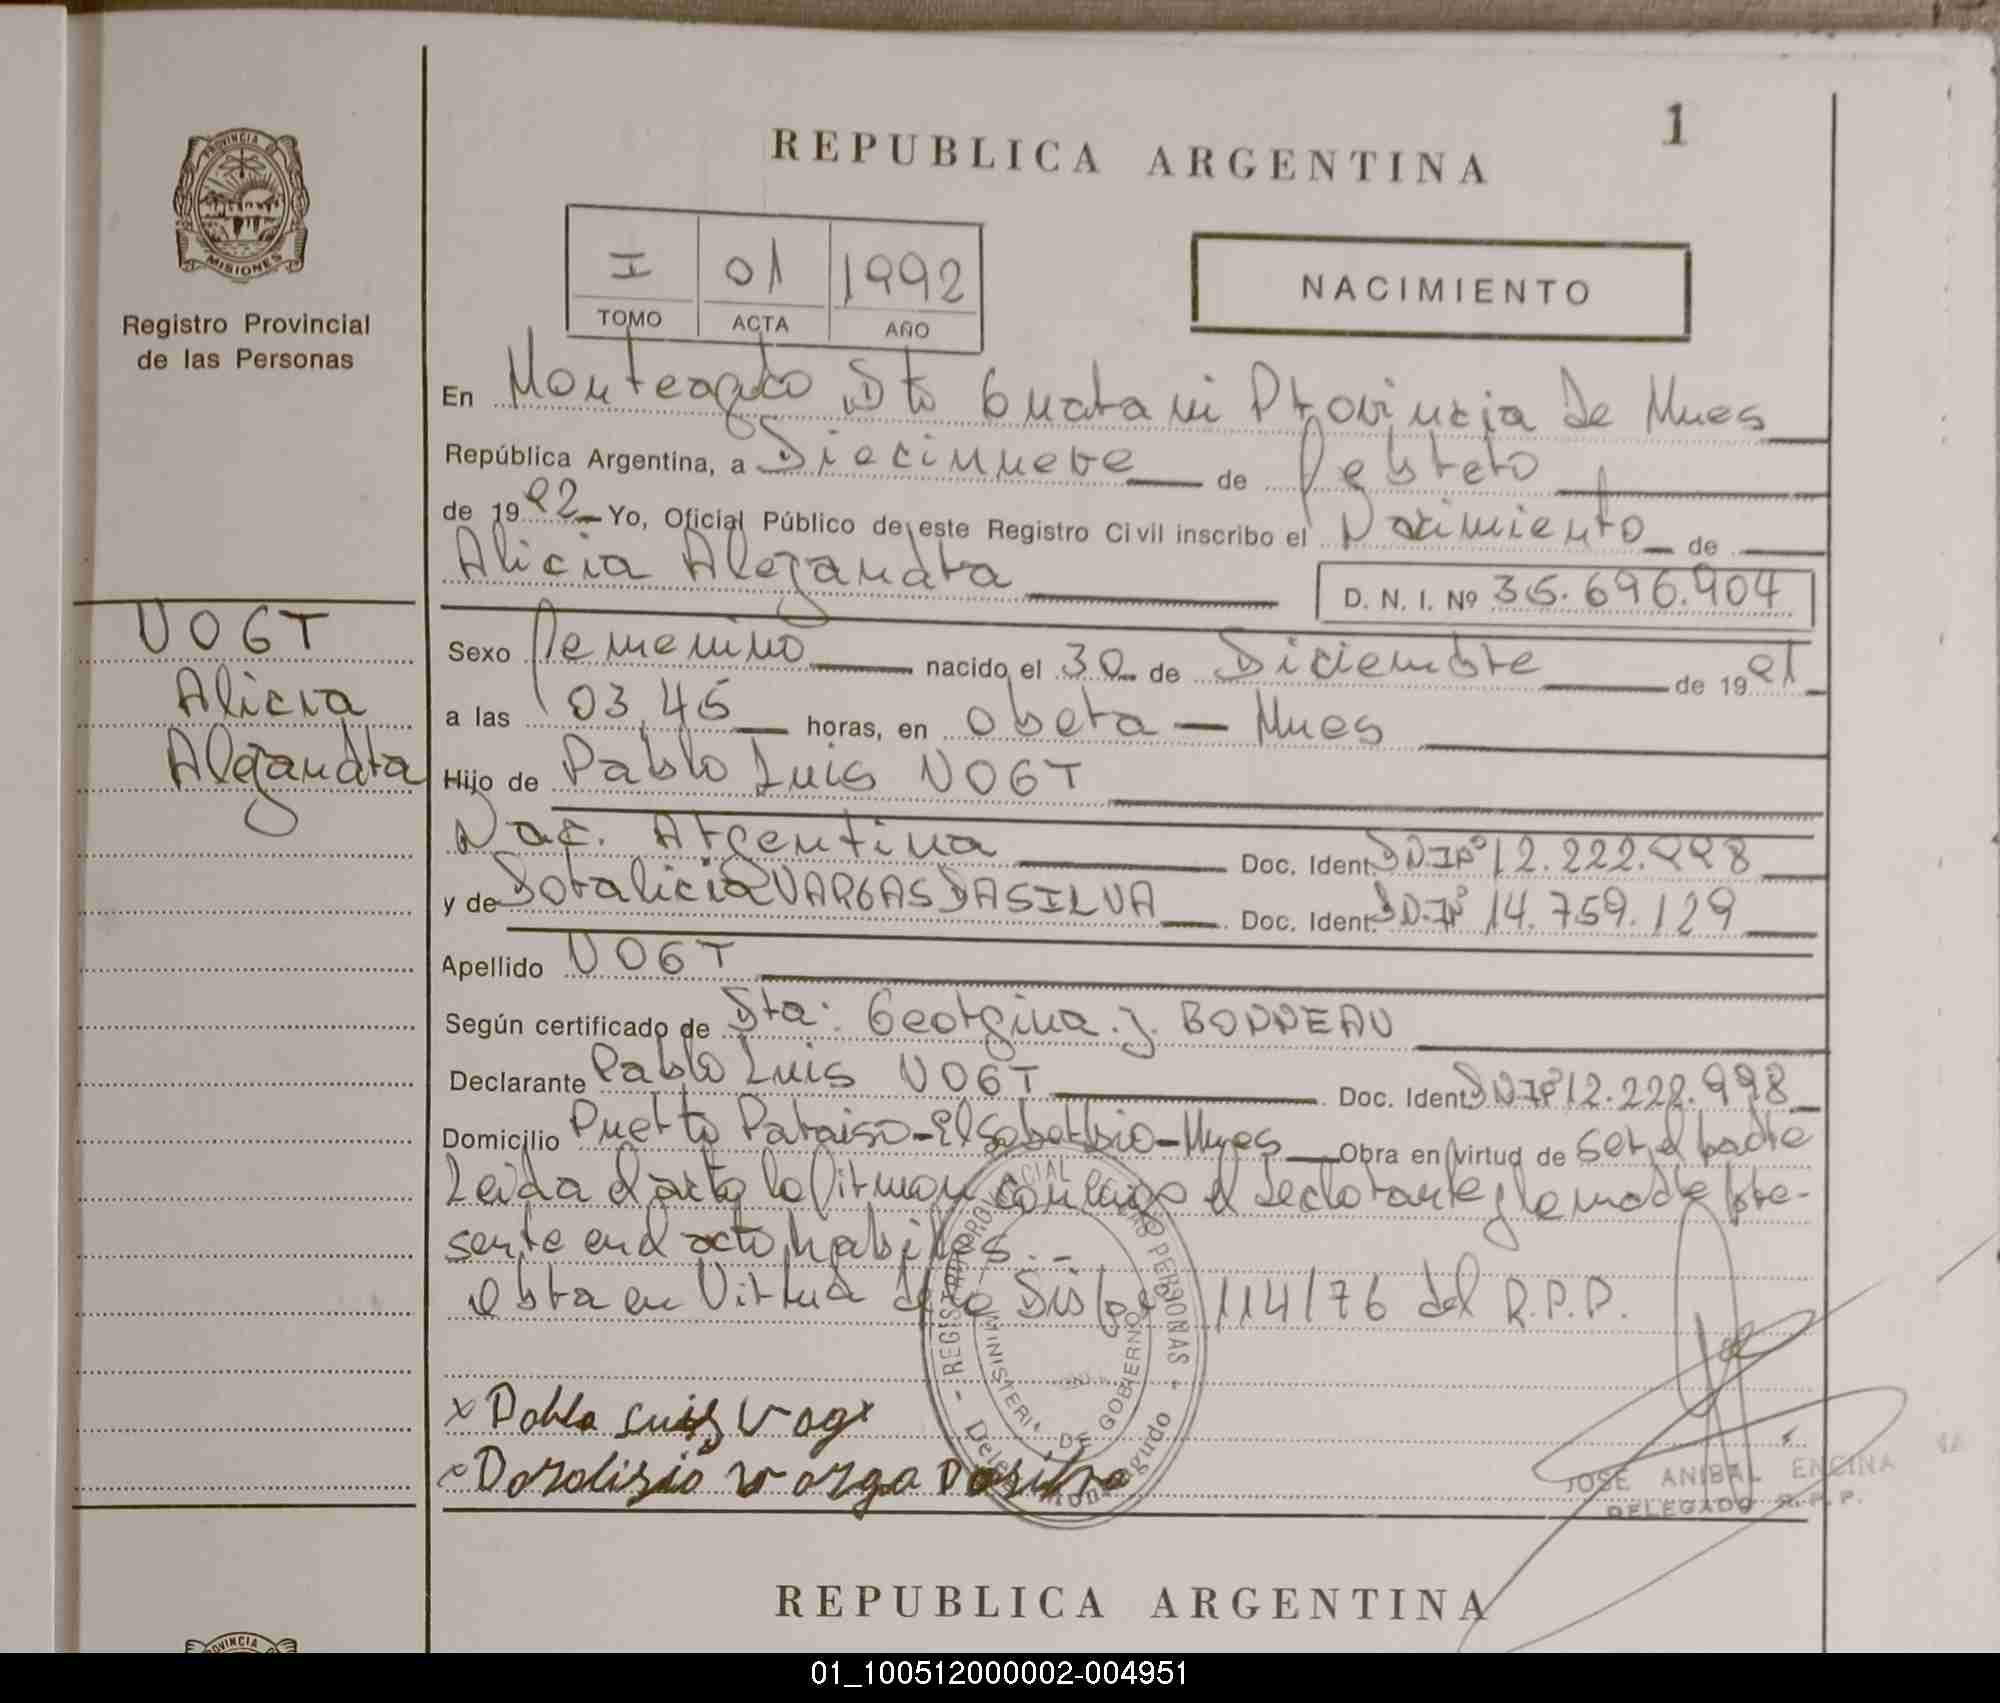 1
REPUBLICA ARGENTINA
PROVINCIA DE
MISIONES
Registro Provincial
de las Personas
I 01 1992
TOMO ACTA AÑO
NACIMIENTO
En Monteagudo Dto Guarani Provincia de Mnes
República Argentina, a Diecinueve de Febrero
de 1992 Yo, Oficial Público de este Registro Civil inscribo el Nacimiento de
Alicia Alejandra D. N. I. Nº 36.696.904
VOGT
Alicia
Alejandra
Sexo Femenino nacido el 30 de Diciembre de 1991
a las 03,45 horas, en Obera - Mnes
Hijo de Pablo Luis VOGT
Nac. Argentina Doc. Ident. DNINº 12.222.998
y de Doralicia VARGAS DASILVA Doc. Ident. DNINº 14.759.129
Apellido VOGT
Según certificado de Sta: Georgina. J. BORREAU
Declarante Pablo Luis VOGT Doc. Ident. DNINº 12.222.998
Domicilio Puerto Paraiso - El Soberbio - Mnes Obra en virtud de ser el padre
Leida el acta la firman conmigo el declarante y la madre pre-
sente en el acto habiles.-
obra en Virtud de la Disp. 114/76 del R.P.P.
x Pablo Luis Vogt
x Doralisia varga Dasilva
REGISTRO PROVINCIAL DE LAS PERSONAS
MINISTERIO DE GOBIERNO
JOSE ANIBAL ENCINA
DELEGADO R.P.P.
REPUBLICA ARGENTINA
PROVINCIA
01_100512000002-004951